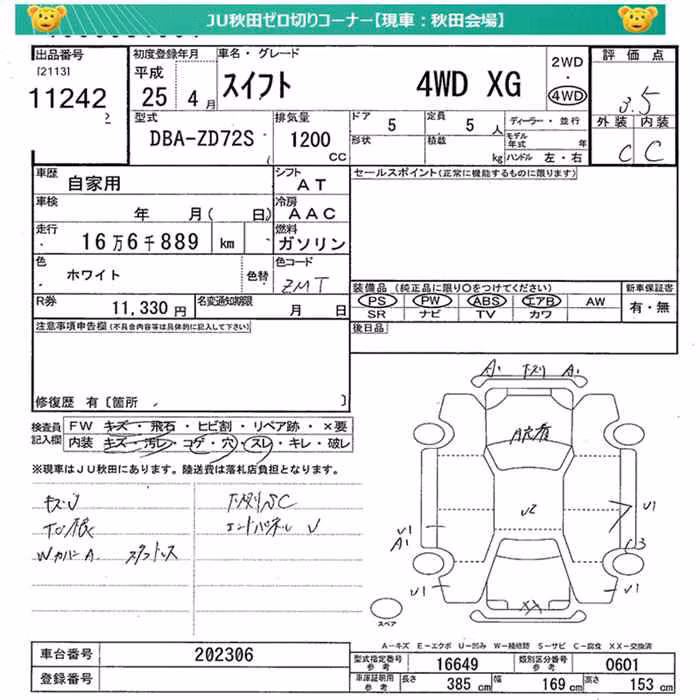 JU秋田ゼロ切りコーナー【現車：秋田会場】
出品番号 初度登録年月 車名・グレード 2WD 評価点
[2113] 平成 ・
11242 25年 4月 スイフト 4WD XG 4WD 3.5
2 型式 排気量 ドア 5 定員 5人 ディーラー・並行 外装 内装
DBA-ZD72S 1200 形状 積載 モデル年式 年 C C
( CC kg ハンドル 左・右
車歴 自家用 シフト AT セールスポイント(正常に機能するものに限ります)
車検 年 月( 日) 冷房 AAC
走行 16万6千889 km 燃料 ガソリン
色 ホワイト 色替 色コード ZMT
装備品 (純正品に限り○をつけてください) 新車保証書
R券 11,330円 名変通知期限 月 日 PS PW ABS エアB AW 有・無
SR ナビ TV カワ
注意事項申告欄(不具合内容等は具体的に記入して下さい) 後日品
修復歴 有 [箇所 ]
検査員記入欄 FW キズ・飛石・ヒビ割・リペア跡・×要
内装 キズ・汚レ・コゲ・穴・スレ・キレ・破レ
※現車はJU秋田にあります。陸送費は落札店負担となります。
A1 A1
U2
U1
U1
A1
U1 U1
XX
スペア
A－キズ E－エクボ U－凹み W－補修跡 S－サビ C－腐食 XX－交換済
車台番号 202306 型式指定番号 参考 16649 類別区分番号 参考 0601
登録番号 車庫証明用 参考 長さ 385 cm 幅 169 cm 高さ 153 cm